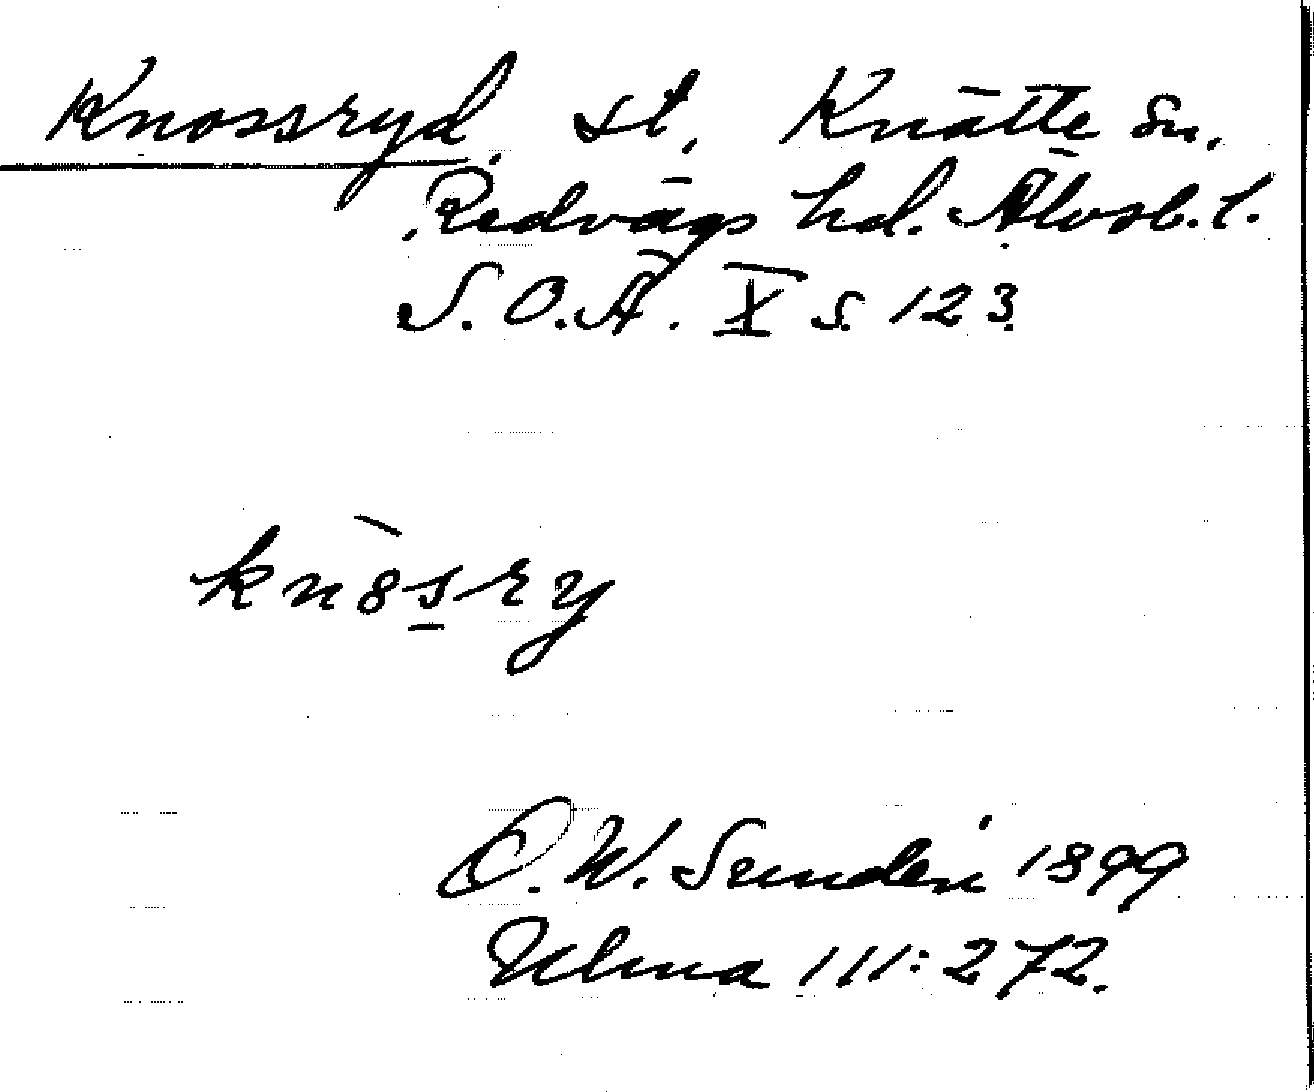 Knossryd, st, Knätte sn,
Redvägs hd. Älvsb. l.
S. O. Ä. X s. 123.
knòsry
D. W. Sundén 1899
Ulma 111:272.